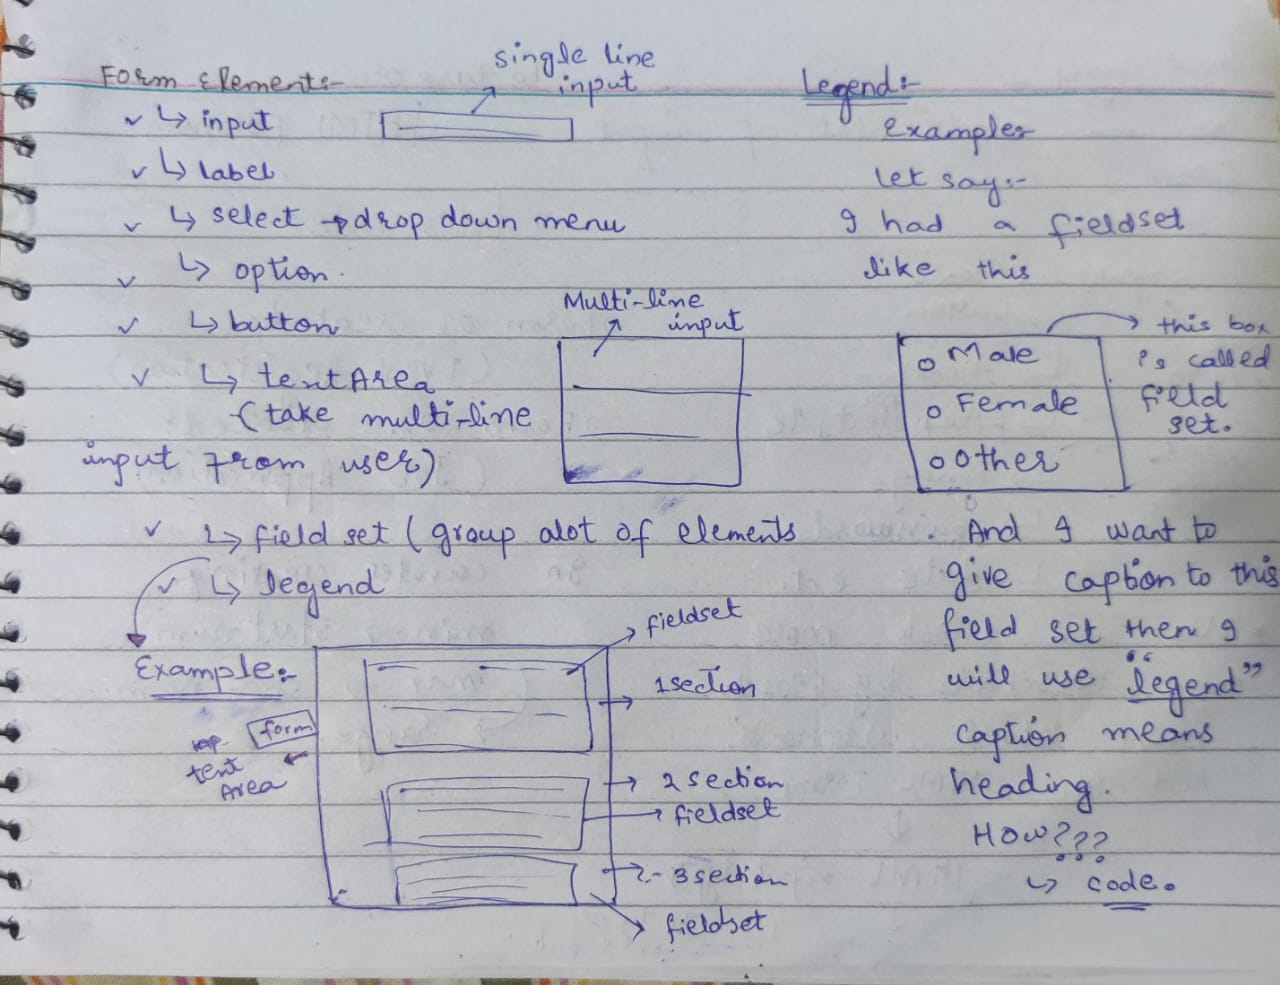 Form Elements:-
single line
input
↳ input
↳ label
↳ select → drop down menu
↳ option.
↳ button
Multi-line
input
↳ textArea
(take multi-line
input from user)
↳ field set (group alot of elements
↳ legend
Example:-
form
text
Area
fieldset
1 section
2 section
fieldset
3 section
fieldset
Legend:-
Examples
let say:-
I had a fieldset
like this
○ Male
○ Female
○ Other
this box
is called
field
set.
. And I want to
give caption to this
field set then I
will use "legend"
caption means
heading.
How???
↳ code.